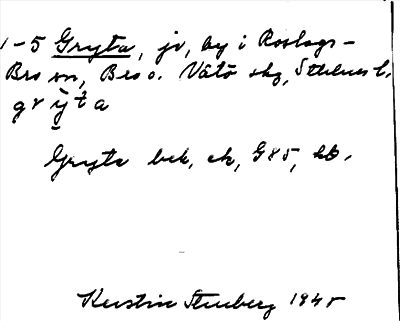 1-5 Gryta, jv, by i Roslags-
Bro sn, Bro o. Vätö skg, Sthlms l.
grýta
Gryta bek, ek, G85, kb.
Kerstin Stenberg 1945